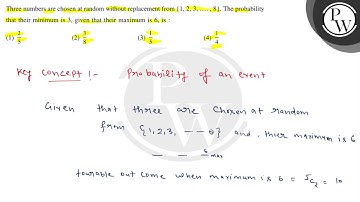 Three numbers are chosen at random without replacement from {1, 2, 3, ....., 8}. The probability
that their minimum is 3, given that their maximum is 6, is :
(1) 2/5 (2) 3/8 (3) 1/5 (4) 1/4
Key concept :- Probability of an event
Given that three are chosen at random
from {1, 2, 3, --- 8} and, thier maximum is 6
_ _ 6 max
fourable out come when maximum is 6 = 5C2 = 10